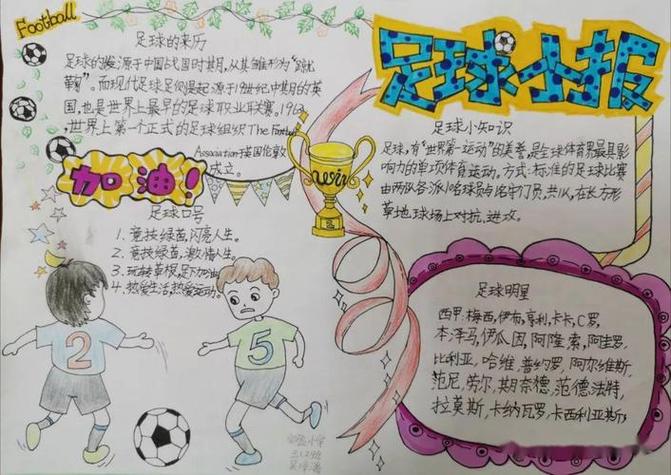 Football
足球的来历
足球的源于中国战国时期,从其雏形为"蹴
鞠"。而现代足球则是起源于19世纪中期的英
国,也是世界上最早的足球职业联赛。1963
,世界上第一个正式的足球组织The Football
Association于英国伦敦
成立。
加油!
足球口号
1. 竞技绿茵,闪亮人生。
2. 竞技绿茵,激情人生。
3. 玩转草根,足下加油
4. 热爱生活,热爱运动。
2
5
win
2
足球小报
足球小知识
足球,有"世界第一运动"的美誉,是全球体育界最具影
响力的单项体育运动。方式:标准的足球比赛
由两队各派10名球员与1名守门员,共11人,在长方形
草地球场上对抗、进攻。
足球明星
西甲:梅西,伊布,亨利,卡卡,C罗,
本泽马,伊瓜因,阿隆索,阿圭罗,
比利亚,哈维,普约罗,阿尔维斯,
范尼,劳尔,斯奈德,范德法特,
拉莫斯,卡纳瓦罗,卡西利亚斯,
小学